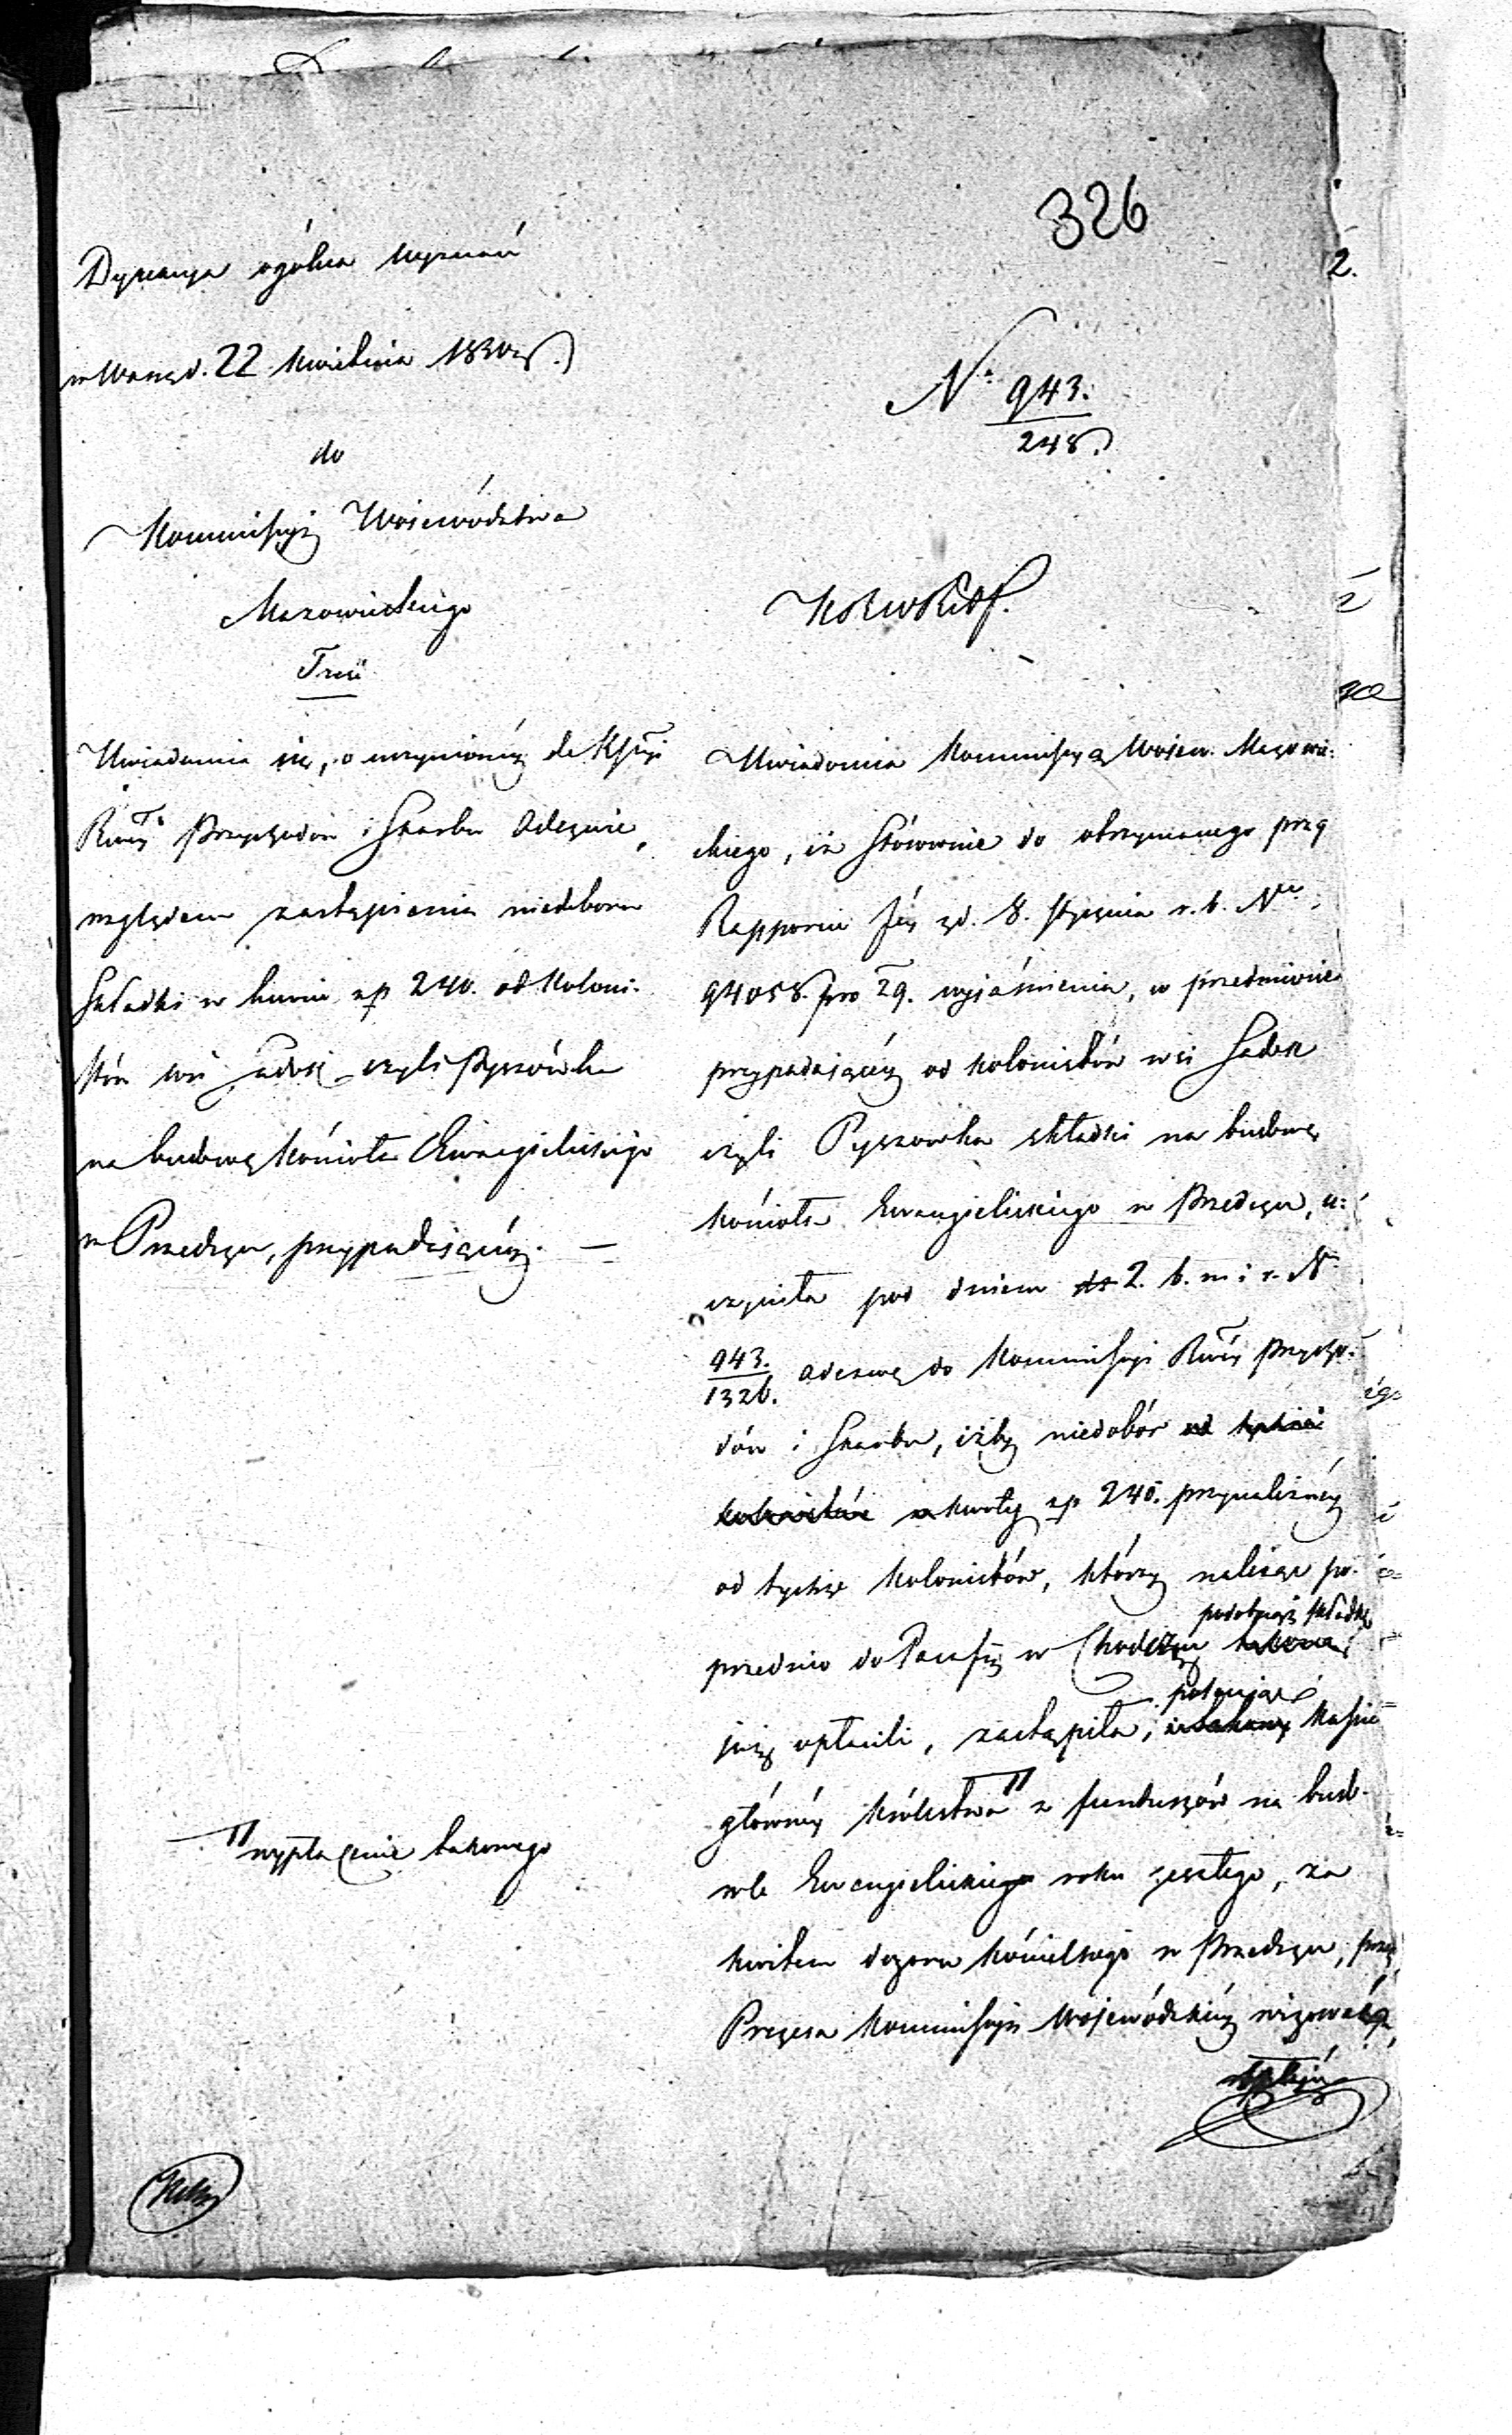 326
Dyrekcya ogólna wyznań
w Warsz. d. 22 kwietnia 1830 r.
do
Kommissyi Województwa
Mazowieckiego
Treść
Uwiadamia się, o uczynionéy do Kssyi
Rząd. Przychodów i Skarbu Odezwie,
względem zastąpienia niedoboru
składki w kwocie zp 240. od koloni-
stów wsi Sadek czyli Pyszówka
na budowę kościoła Ewangielickiego
w Przedczu, przypadającéy. —
wypłacenie takowego
N. 943.
248.
Uwiadomia Kommissyą Wojew. Mazowie-
ckiego, iż stósownie do otrzymanego przy
Rapporcie Jéy z d. 8. stycznia r. b. N
94058. pro 29. wyjaśnienia, w przedmiocie
przypadającéy od kolonistów wsi Sadek
czyli Pyszowka składki na budowę
kościoła Ewangielickiego w Przedczu, u-
czyniła pod dniem 2. b. m. i r. N
943.
1326. odezwę do Kommissyi Rząd. Przycho-
dów i Skarbu, iżby niedobór od tychże
kolonistów w kwoty zp 240. przynależnéy
od tychże kolonistów, którzy należąc po-
przednio do Parafii w Chodczu podobnąż składkę
już opłacili, zastąpiła, polecając Kassie
głównéy Królestwa z funduszów na bud-
wle Ewangielickie roku zeszłego, za
kwitem dozoru kościelnego w Przedczu, przez
Prezesa Kommissyi Wojewódzkiéy